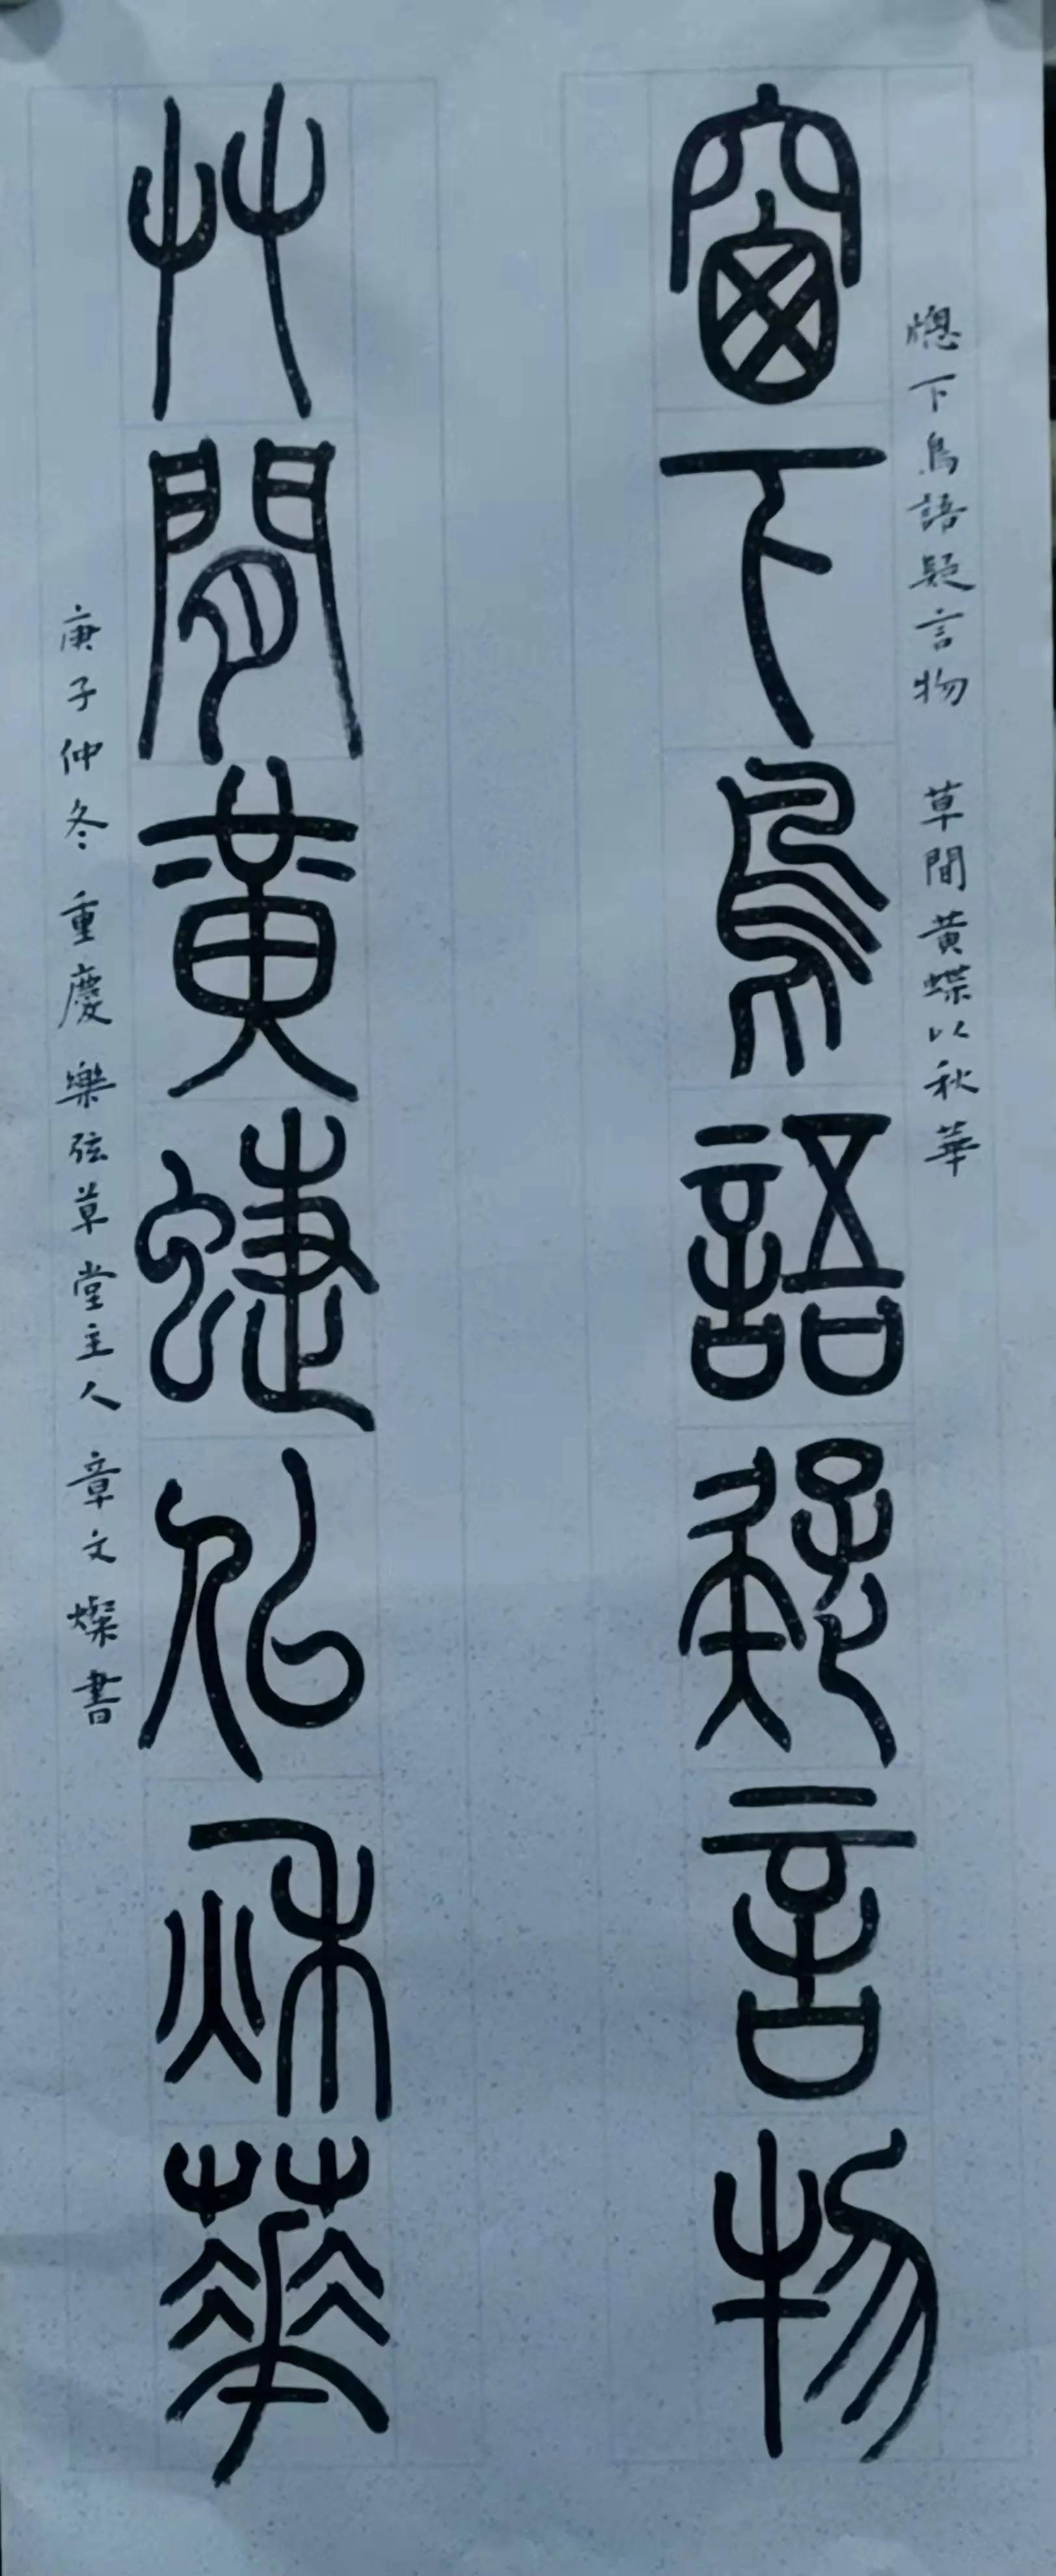 牕下鳥語疑言物　草間黃蝶以秋華
窗下鳥語疑言物
艸閒黃蜨佀秌華
庚子仲冬重慶樂弦草堂主人章文燦書